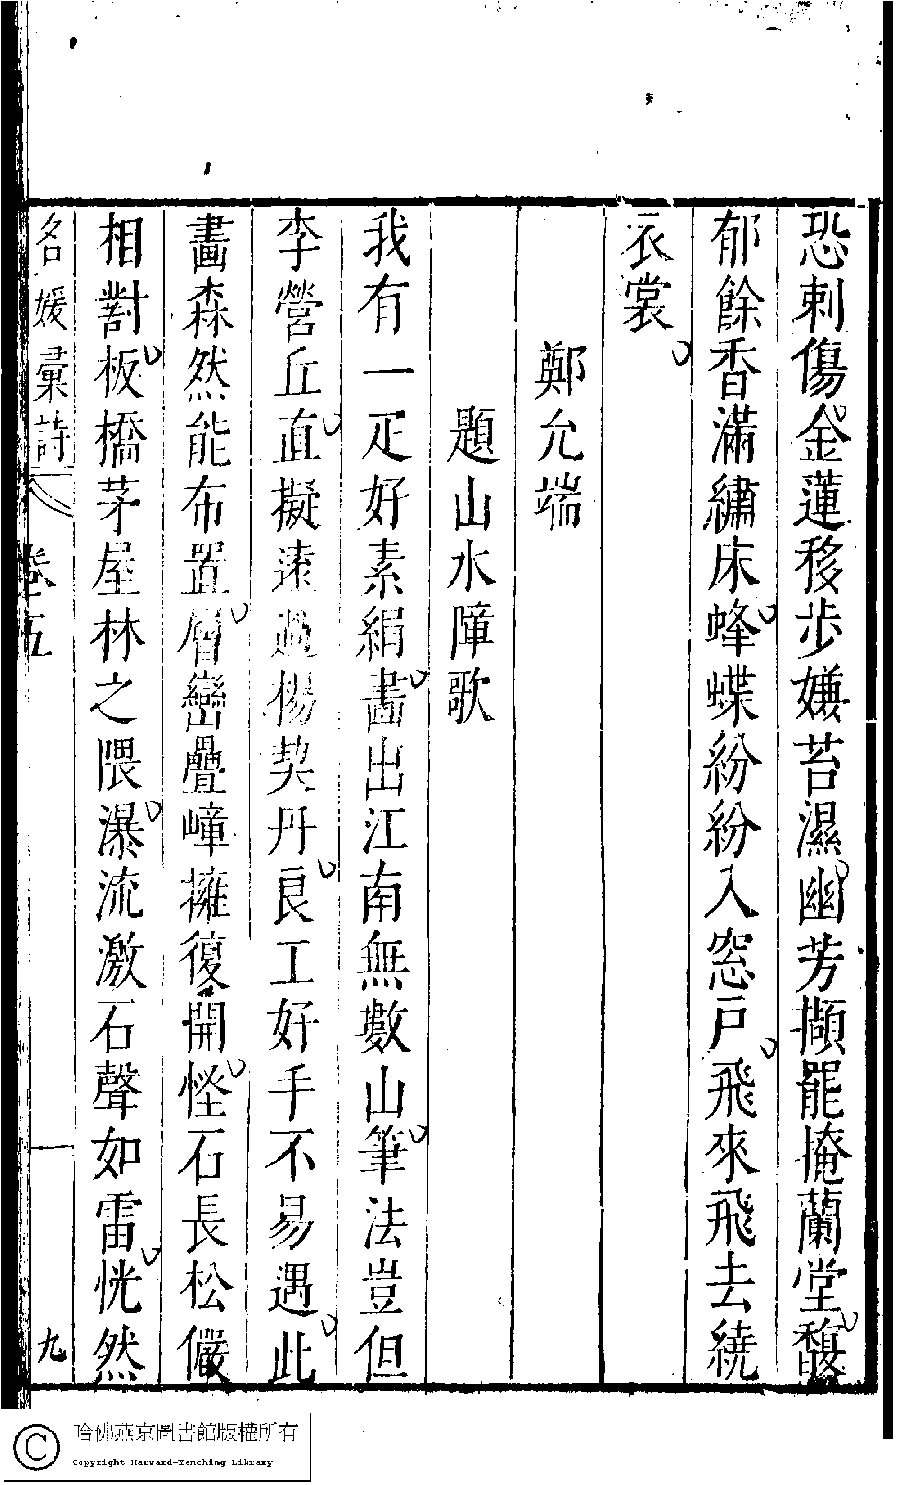 恐刺傷金蓮移步嫌苔濕幽芳擷罷掩蘭堂馥
郁餘香滿繡床蜂蝶紛紛入窓戶飛來飛去繞
衣裳
鄭允端
題山水障歌
我有一疋好素絹畫出江南無數山筆法豈但
李營丘直擬遠過楊契丹良工好手不易遇此
畫森然能布置層巒疊嶂擁復開怪石長松儼
相對板橋茅屋林之隈瀑流激石聲如雷恍然
名媛彙詩 卷五 九
哈佛燕京圖書館版權所有
Copyright Harvard-Yenching Library